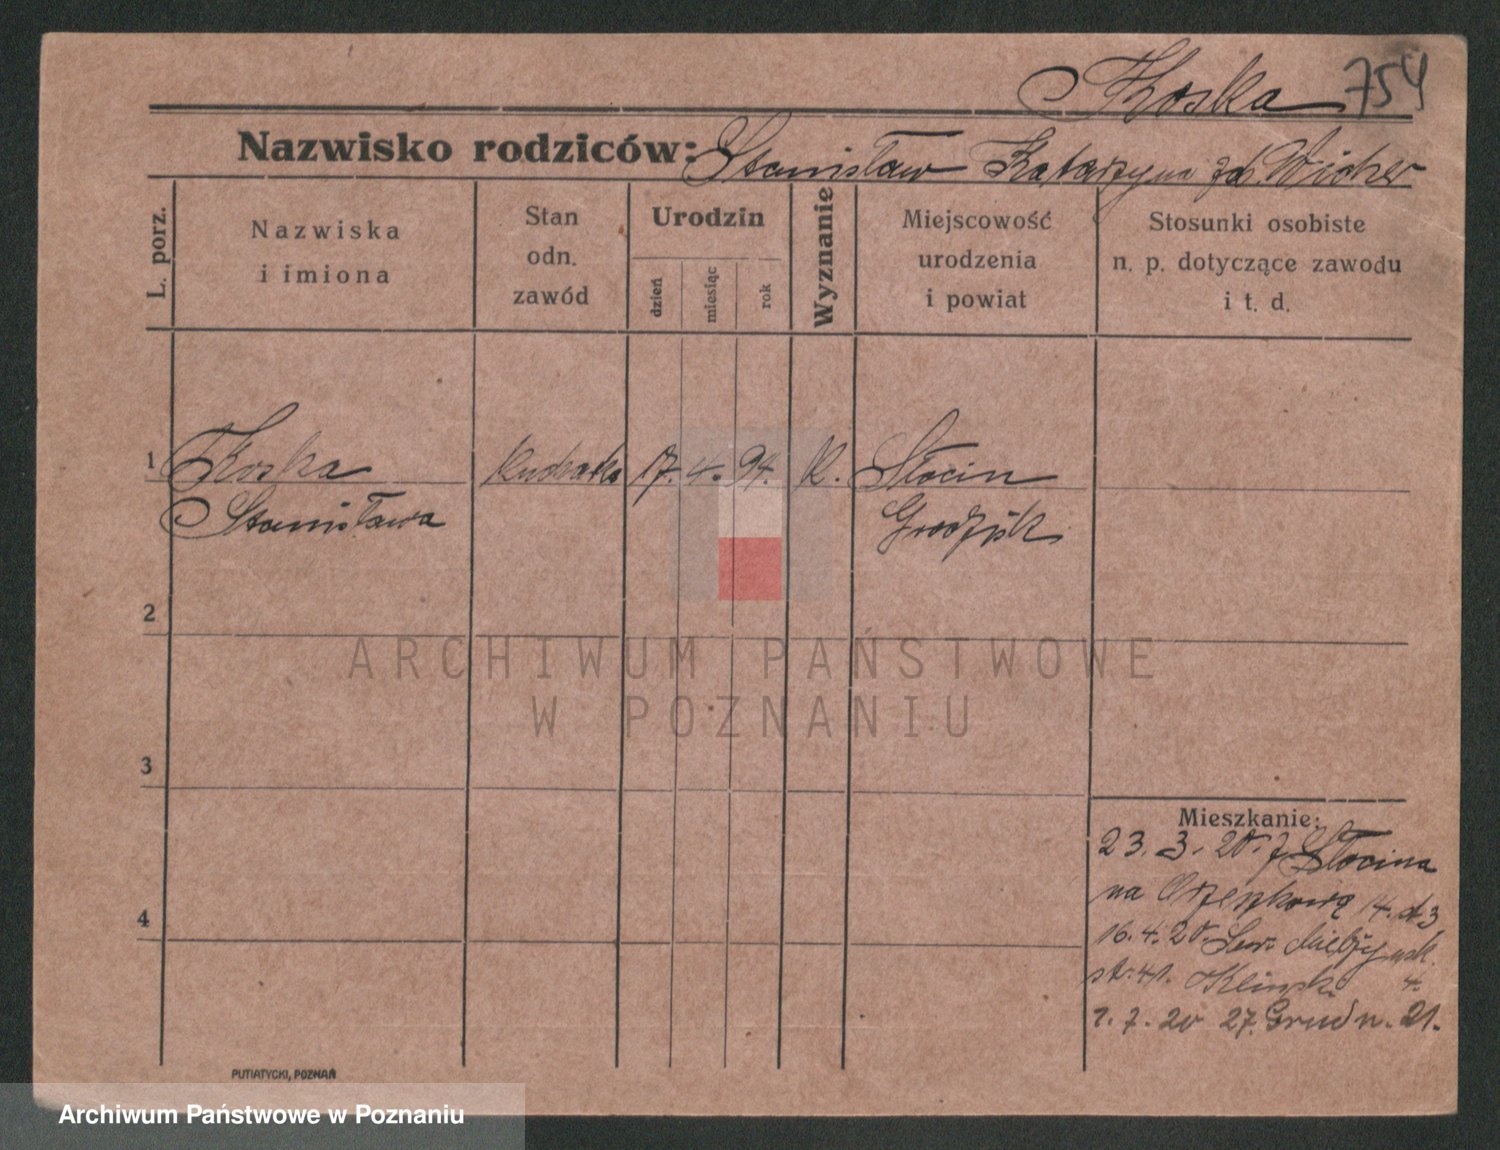 Koska 754
Nazwisko rodziców: Stanisław Katarzyna zd. Wicher
L. porz.
Nazwiska
i imiona
Stan
odn.
zawód
Urodzin
dzień
miesiąc
rok
Wyznanie
Miejscowość
urodzenia
i powiat
Stosunki osobiste
n. p. dotyczące zawodu
i t. d.
1 Koska 17. 4. 94. K. Słocin
Stanisława Grodzisk
2
3
4
Mieszkanie:
23. 3. 20. z Słocina
na Orzeszkową 14. d. 3
16. 4. 20.
str. 41.
1. 7. 20 27. Grudn. 21.
PUTIATYCKI, POZNAŃ
ARCHIWUM PAŃSTWOWE
W POZNANIU
Archiwum Państwowe w Poznaniu